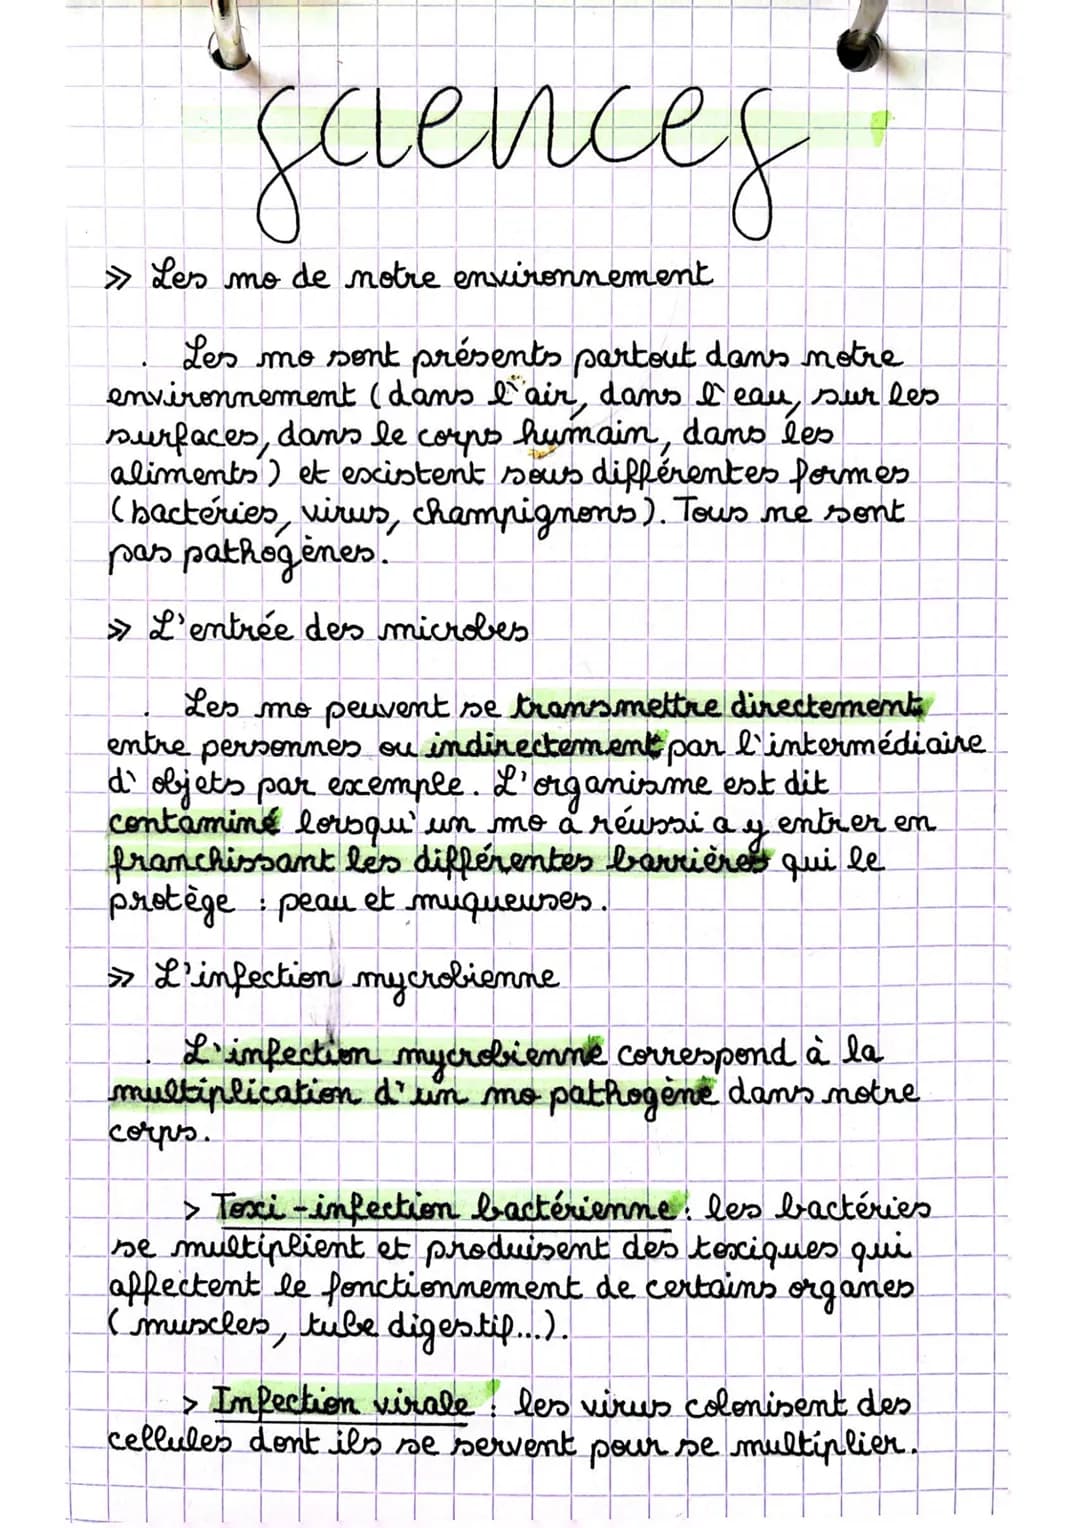 sciences
>> Les mo de notre environnement
. Les mo sont présents partout dans notre
environnement (dans l'air, dans l'eau, sur les
surfaces, dans le corps humain, dans les
aliments) et existent sous différentes formes
(bactéries, virus, champignons). Tous ne sont
pas pathogènes.
>> L'entrée des microbes
. Les mo peuvent se transmettre directement
entre personnes ou indirectement par l'intermédiaire
d'objets par exemple. L'organisme est dit
contaminé lorsqu'un mo a réussi a y entrer en
franchissant les différentes barrières qui le
protège : peau et muqueuses.
>> L'infection mycrobienne
. L'infection mycrobienne correspond à la
multiplication d'un mo pathogène dans notre
corps.
> Toxi-infection bactérienne : les bactéries
se multiplient et produisent des toxiques qui
affectent le fonctionnement de certains organes
(muscles, tube digestif...).
> Infection virale : les virus colonisent des
cellules dont ils se servent pour se multiplier.